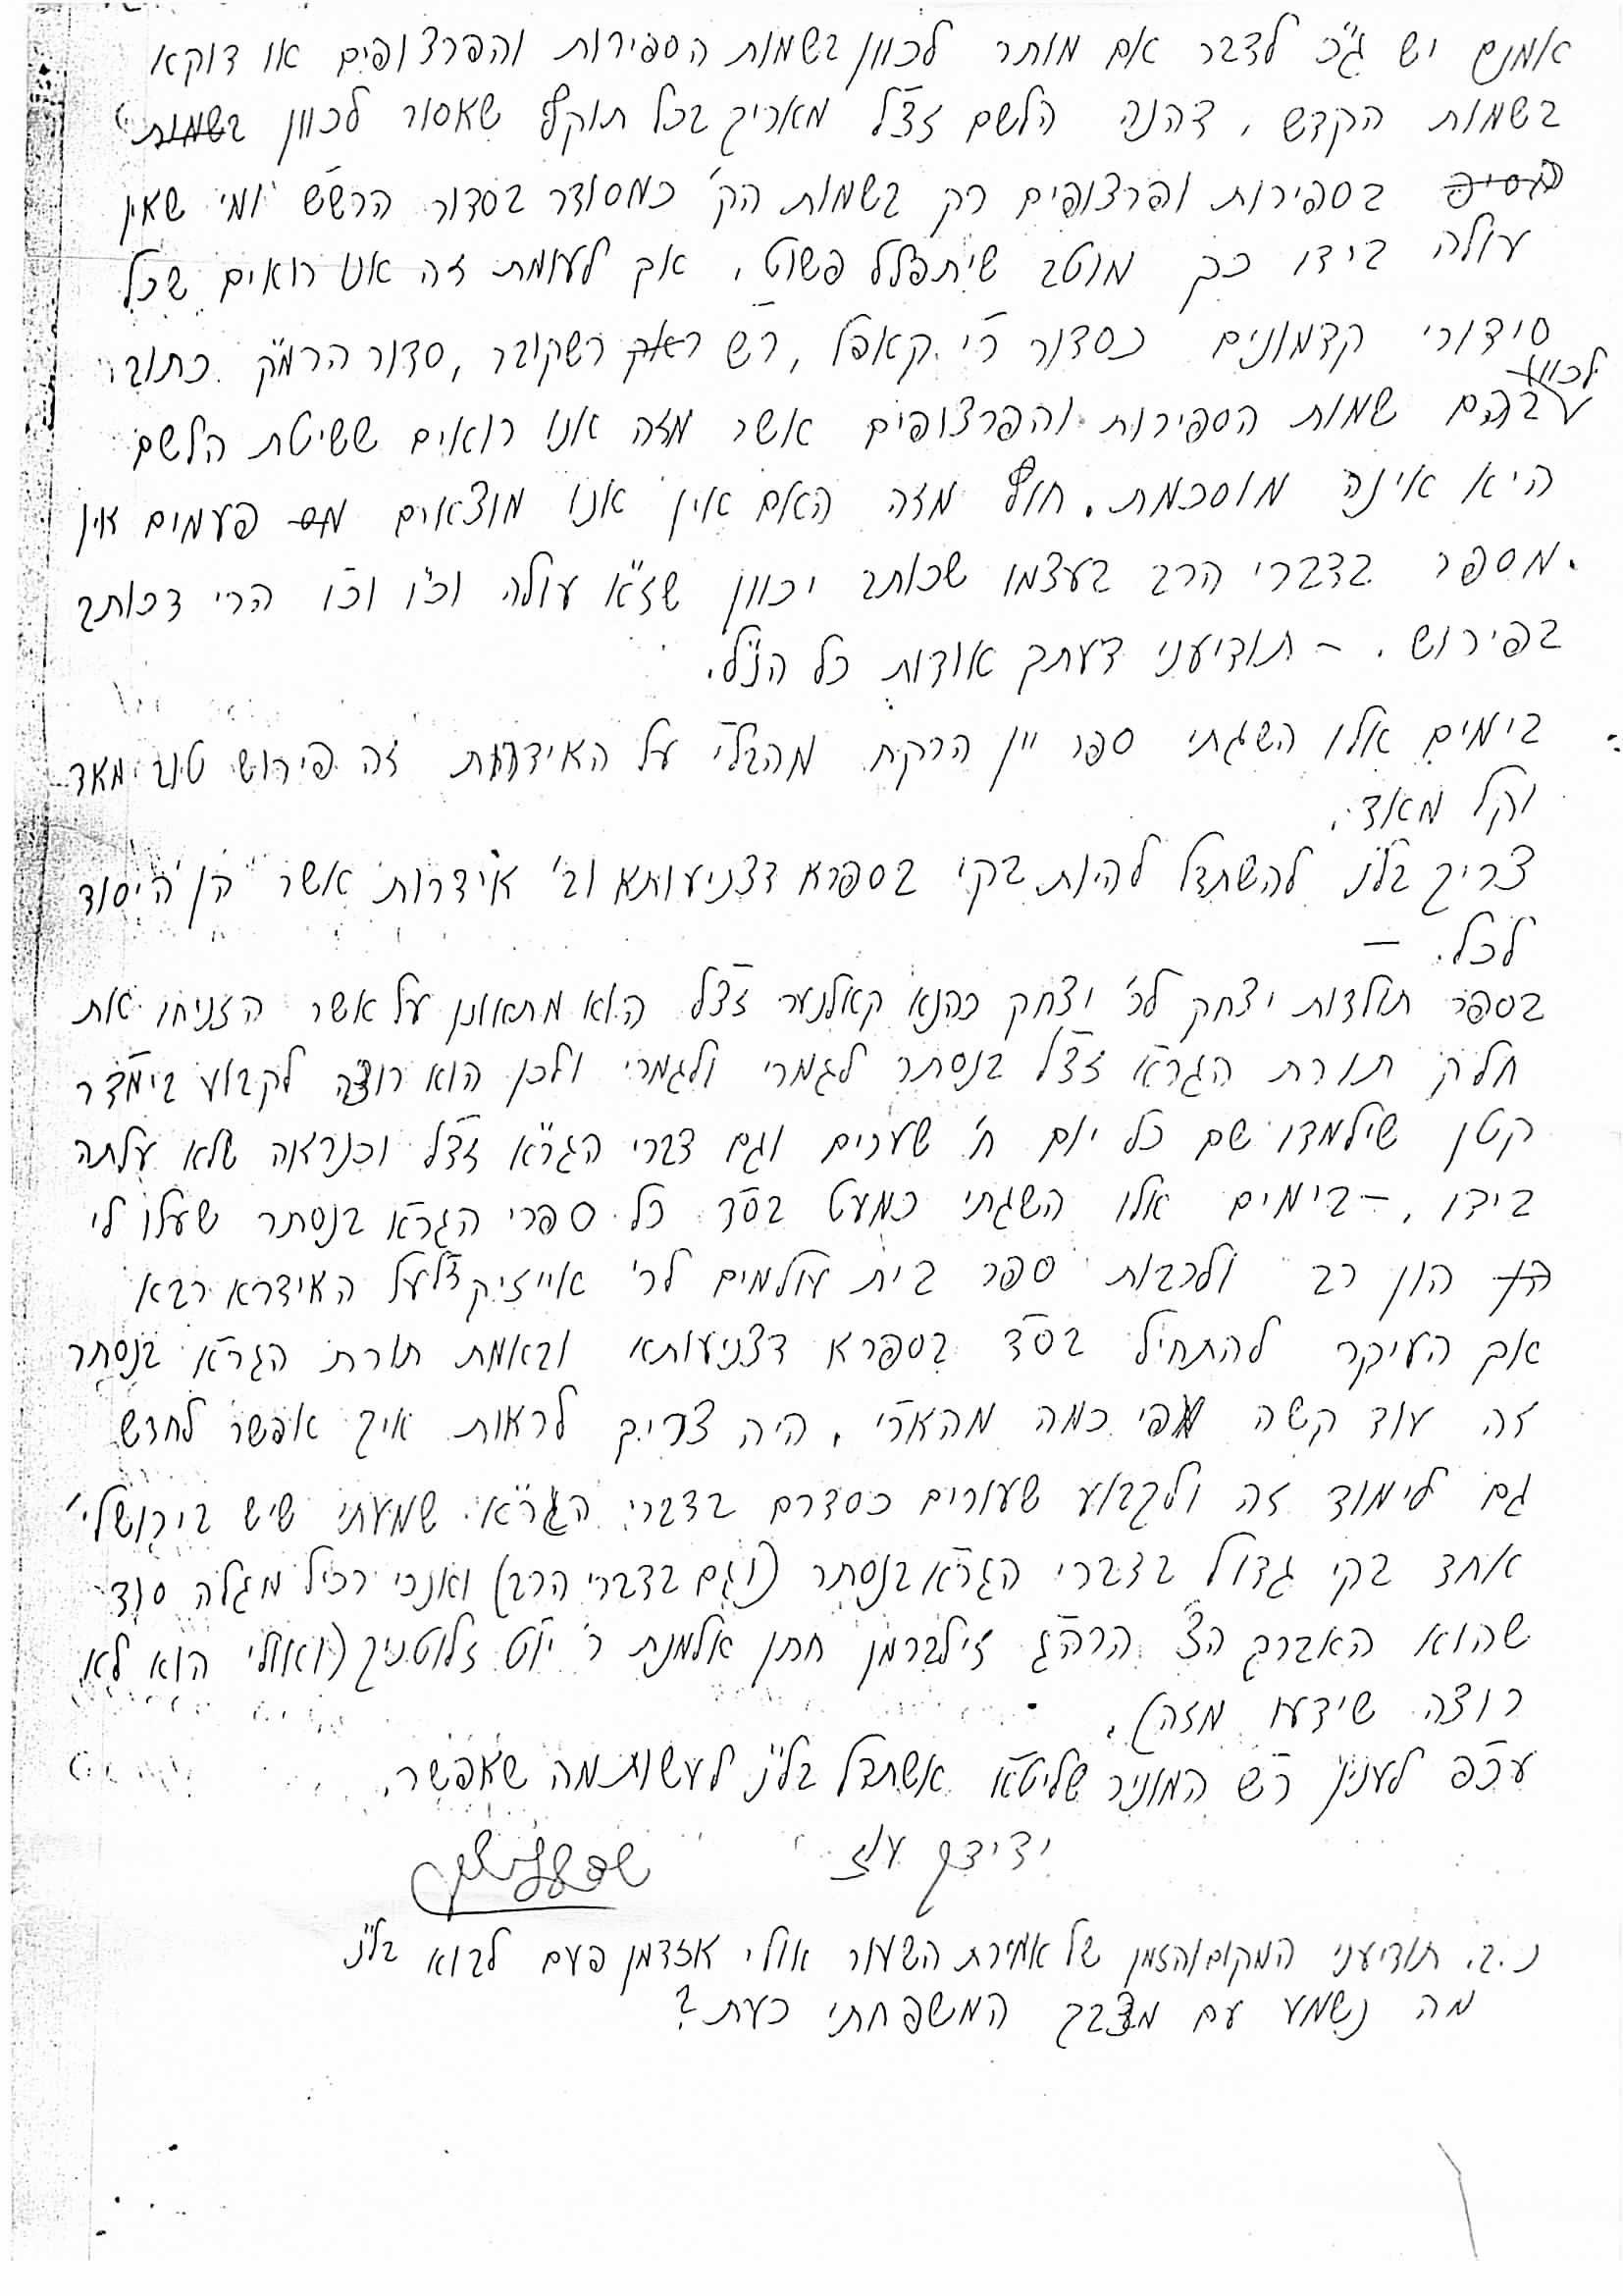 אמנם יש ג"כ לדבר אם מותר לכוון בשמות הספירות והפרצופים או דוקא
בשמות הקדש, דהנה הלשם זצ"ל מאריך בכל תוקף שאסור לכוון בשמות
בספירות ופרצופים רק בשמות הק' כמסודר בסדור הרש"ש ומי שאין
עולה בידו כך מוטב שיתפלל פשוט, אך לעומת זה אנו רואים שכל
סידורי קדמונים כסדור ר"י קאפל, ר"ש רשקובר, סדור הרמ"ק כתוב
לכוון
בהם שמות הספירות והפרצופים אשר מזה אנו רואים ששיטת הלשם
היא אינה מוסכמת. חוץ מזה האם אין אנו מוצאים פעמים אין
מספר בדברי הרב בעצמו שכותב יכוון שז"א עולה וכו' וכו' הרי דכותב
בפירוש. – תודיעני דעתך אודות כל הנ"ל.
בימים אלו השגתי ספר יין הרקח מהבל"י על האידרות זה פירוש טוב מאד
וקל מאד.
צריך בל"נ להשתדל להיות בקי בספרא דצניעותא וב' אידרות אשר הן היסוד
לכל. –
בספר תולדות יצחק לר' יצחק כהנא קאלנער זצ"ל הוא מתאונן על אשר הזניחו את
חלק תורת הגר"א זצ"ל בנסתר לגמרי ולגמרי ולכן הוא רוצה לקבוע בימד"ר
קטן שילמדו שם כל יום ח' שערים וגם דברי הגר"א זצ"ל וכנראה שלא עלתה
בידו. – בימים אלו השגתי כמעט בס"ד כל ספרי הגר"א בנסתר שעלו לי
הון הון רב ולרבות ספר בית עולמים לר' אייזיק זצ"ל על האידרא רבא
אך העיקר להתחיל בס"ד בספרא דצניעותא ובאמת תורת הגר"א בנסתר
זה עוד קשה פי כמה מהאר"י. היה צריך לראות איך אפשר לחדש
גם לימוד זה ולקבוע שעורים כסדרם בדברי הגר"א. שמעתי שיש בירושלי'
אחד בקי גדול בדברי הגר"א בנסתר (וגם בדברי הרב) ואנכי רכיל מגלה סוד
שהוא האברך הצ' הרה"ג זילברמן חתן אלמנת ר' יו"ט זלוטניק (ואולי הוא לא
רוצה שידעו מזה).
עכ"פ לענין ר"ש המוניר שליט"א אשתדל בל"נ לעשות מה שאפשר.
ידידך עוז
נ.ב. תודיעני המקום והזמן של אמירת השעור אולי אזדמן פעם לבוא בל"נ
מה נשמע עם מצבך המשפחתי כעת?